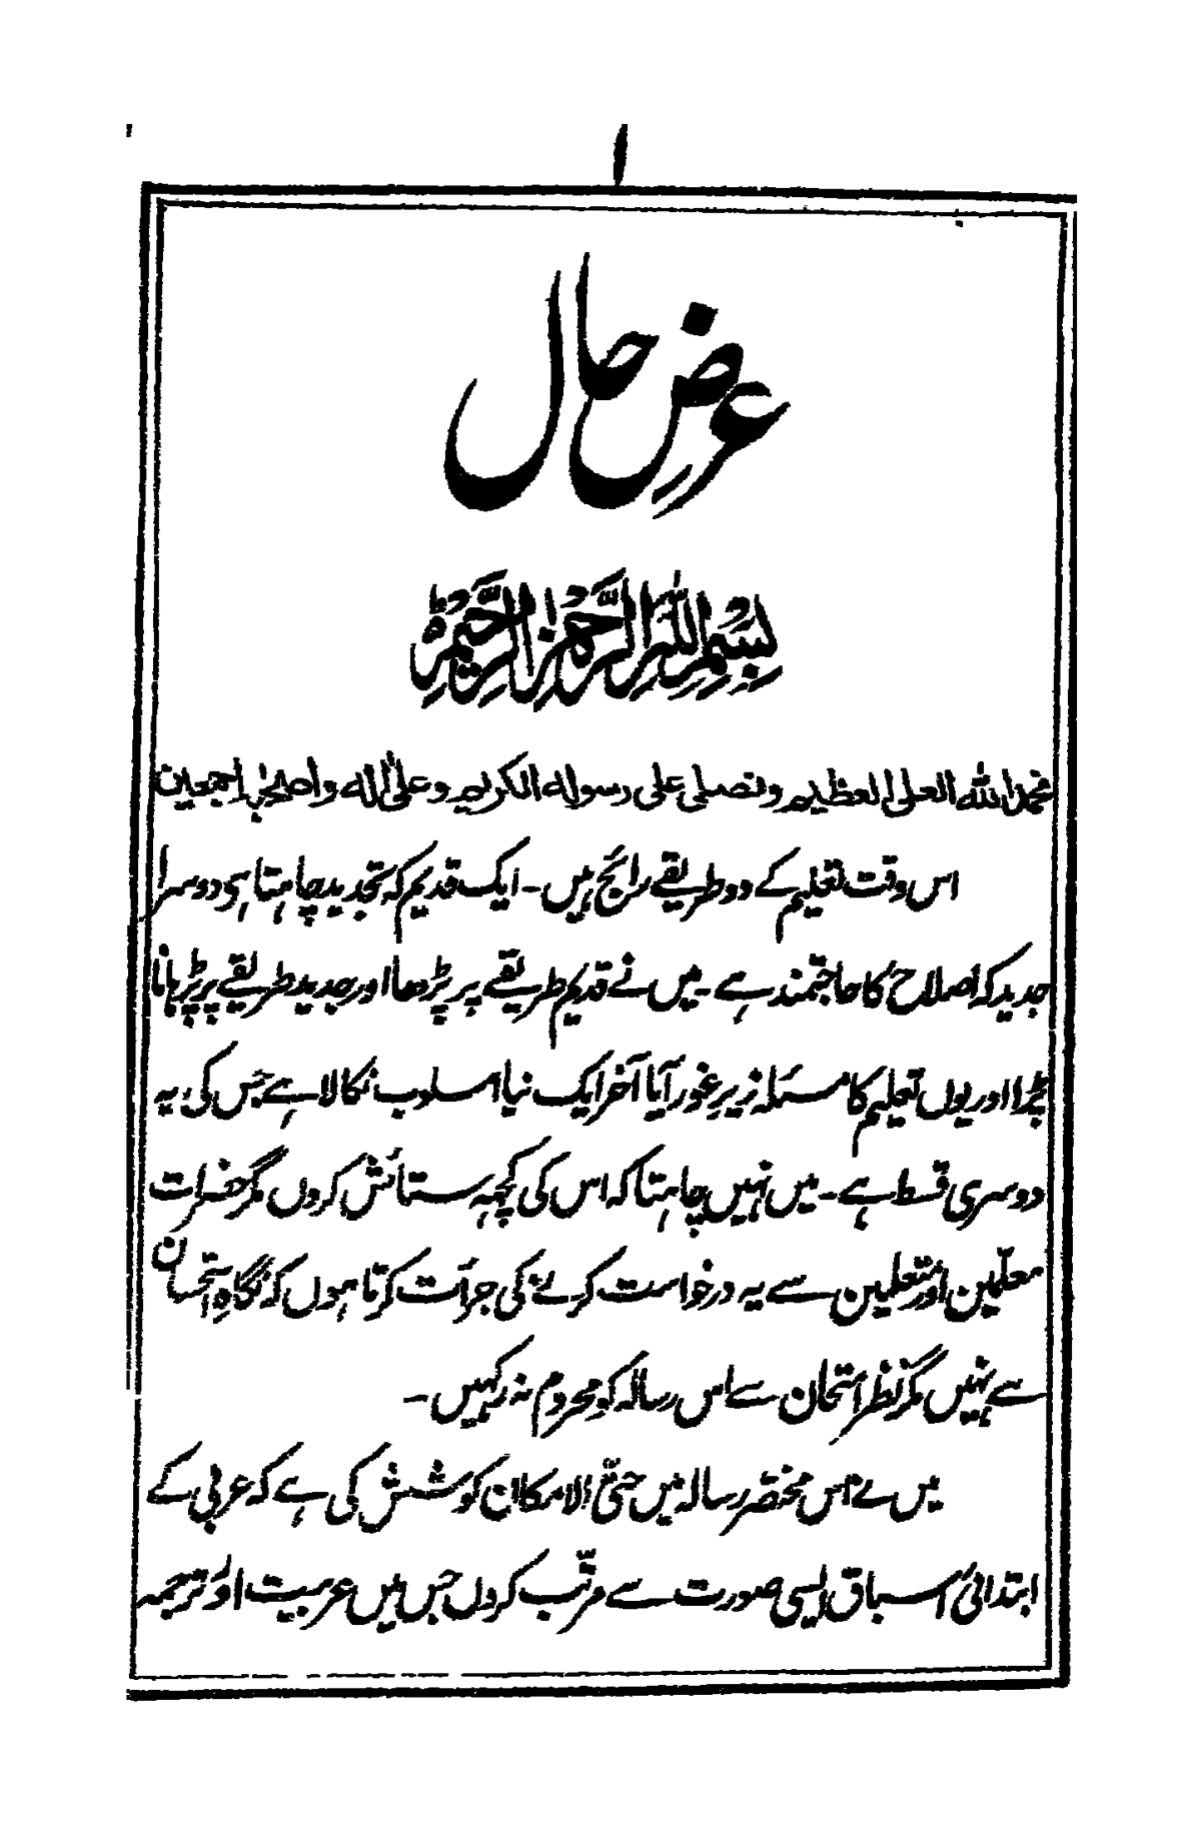 ۱
عرضِ حال
بِسْمِ اللّٰهِ الرَّحْمٰنِ الرَّحِيْمِ ۃ
نحمد اللّٰه العلی العظیم و نصلی علی رسوله الکریم وعلیٰ اٰله واصحٰبه اجمعین
اس وقت تعلیم کے دو طریقے رائج ہیں۔ ایک قدیم کہ تجدید چاہتا ہی دوسرا
جدید کہ اصلاح کا حاجتمند ہے۔ میں نے قدیم طریقے پر پڑھا اور جدید طریقے پر پڑہانا
پڑا اور یوں تعلیم کا مسئلہ زیرِ غور آیا آخر ایک نیا اسلوب نکالا ہے جس کی یہ
دوسری قسط ہے۔ میں نہیں چاہتا کہ اس کی کچہہ ستائش کروں مگر حضرات
معلّمین اور متعلمین سے یہ درخواست کرنے کی جرأت کرتا ہوں کہ نگاہِ استحسان
سے نہیں مگر نظرِ امتحان سے اس رسالہ کو محروم نہ رکہیں۔
میں نے اس مختصر رسالہ میں حتّی الامکان کوشش کی ہے کہ عربی کے
ابتدائی اسباق ایسی صورت سے مرتّب کروں جس میں عربیت اور ترجمہ